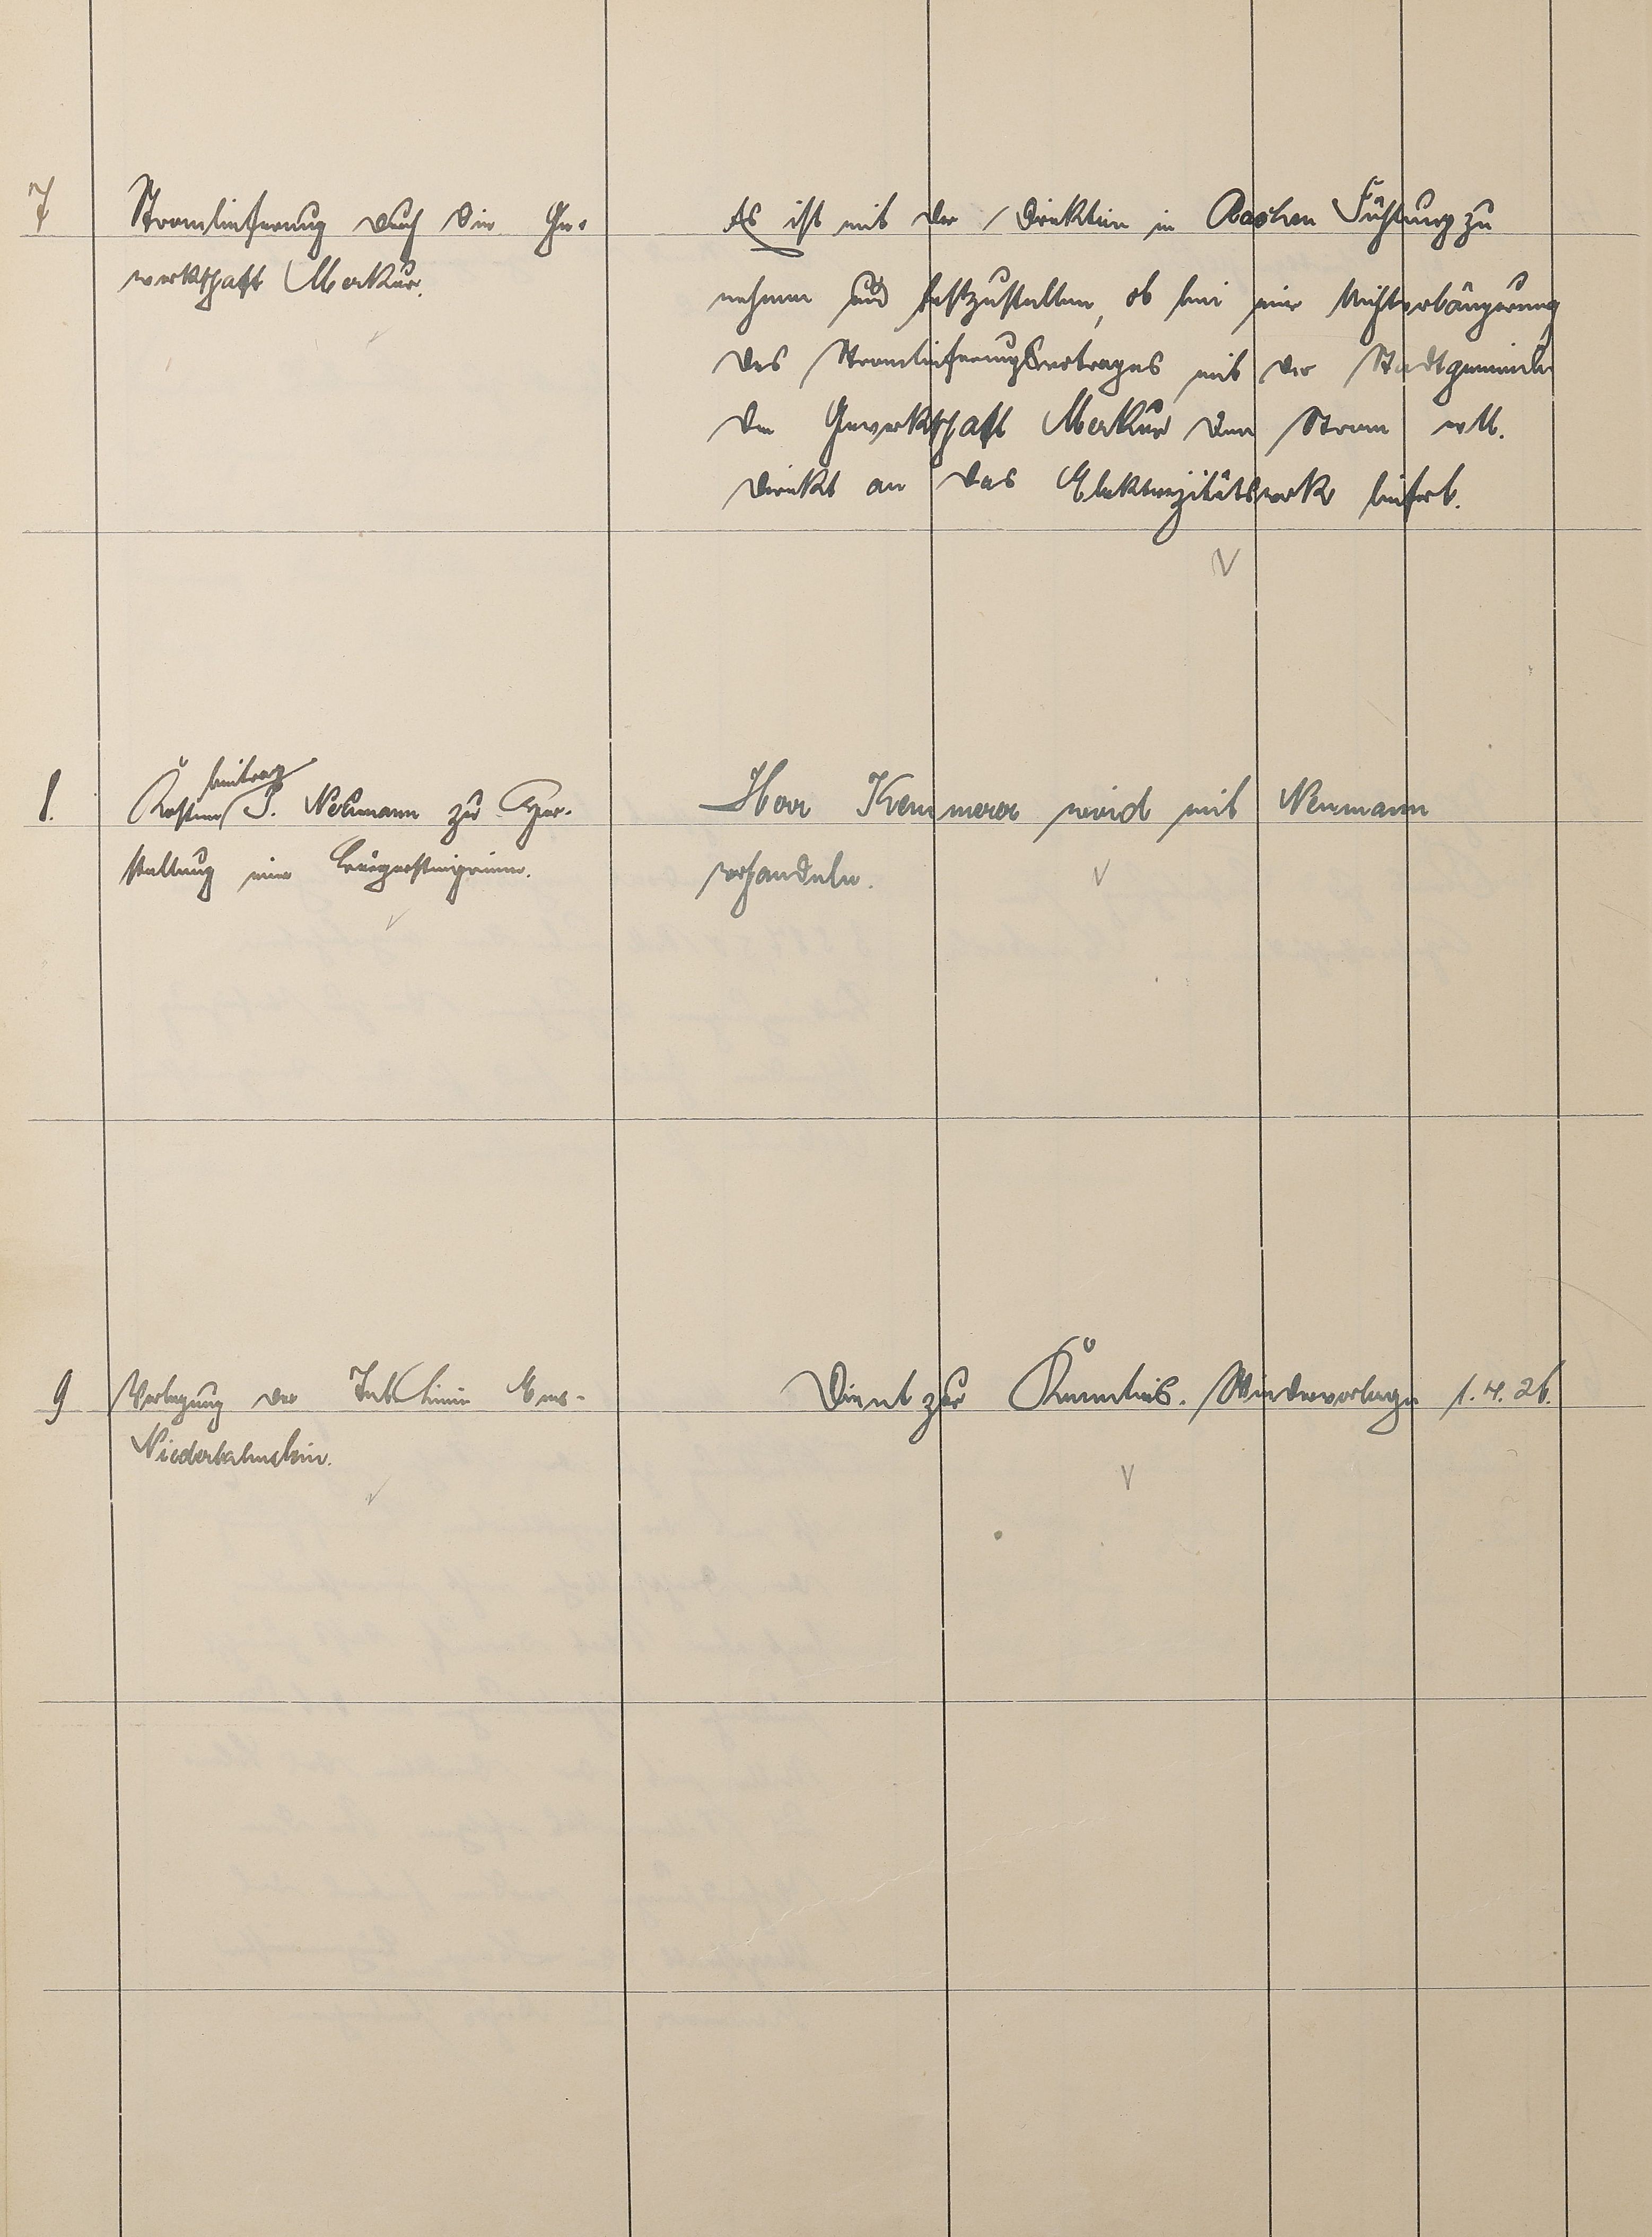 7
Stromlieferung durch die Ge-
werkschaft Merkur.
Es ist mit der Direktion in Aachen Fühlung zu
nehmen und festzustellen, ob bei einer Nichtverlängerung
des Stromlieferungsvertrages mit der Stadtgemeinde
die Gewerkschaft Merkur den Strom evtl.
direkt an das Elektrizitätswerk liefert.
8.
beitrag
Kosten P. Neumann zur Her-
stellung einer Bürgersteigrinne.
Herr Kemmerer wird mit Neumann
verhandeln.
9
Verlegung der Linie Ems-
Niederlahnstein.
Dient zur Kenntnis. Wiedervorlage 1.4.26.